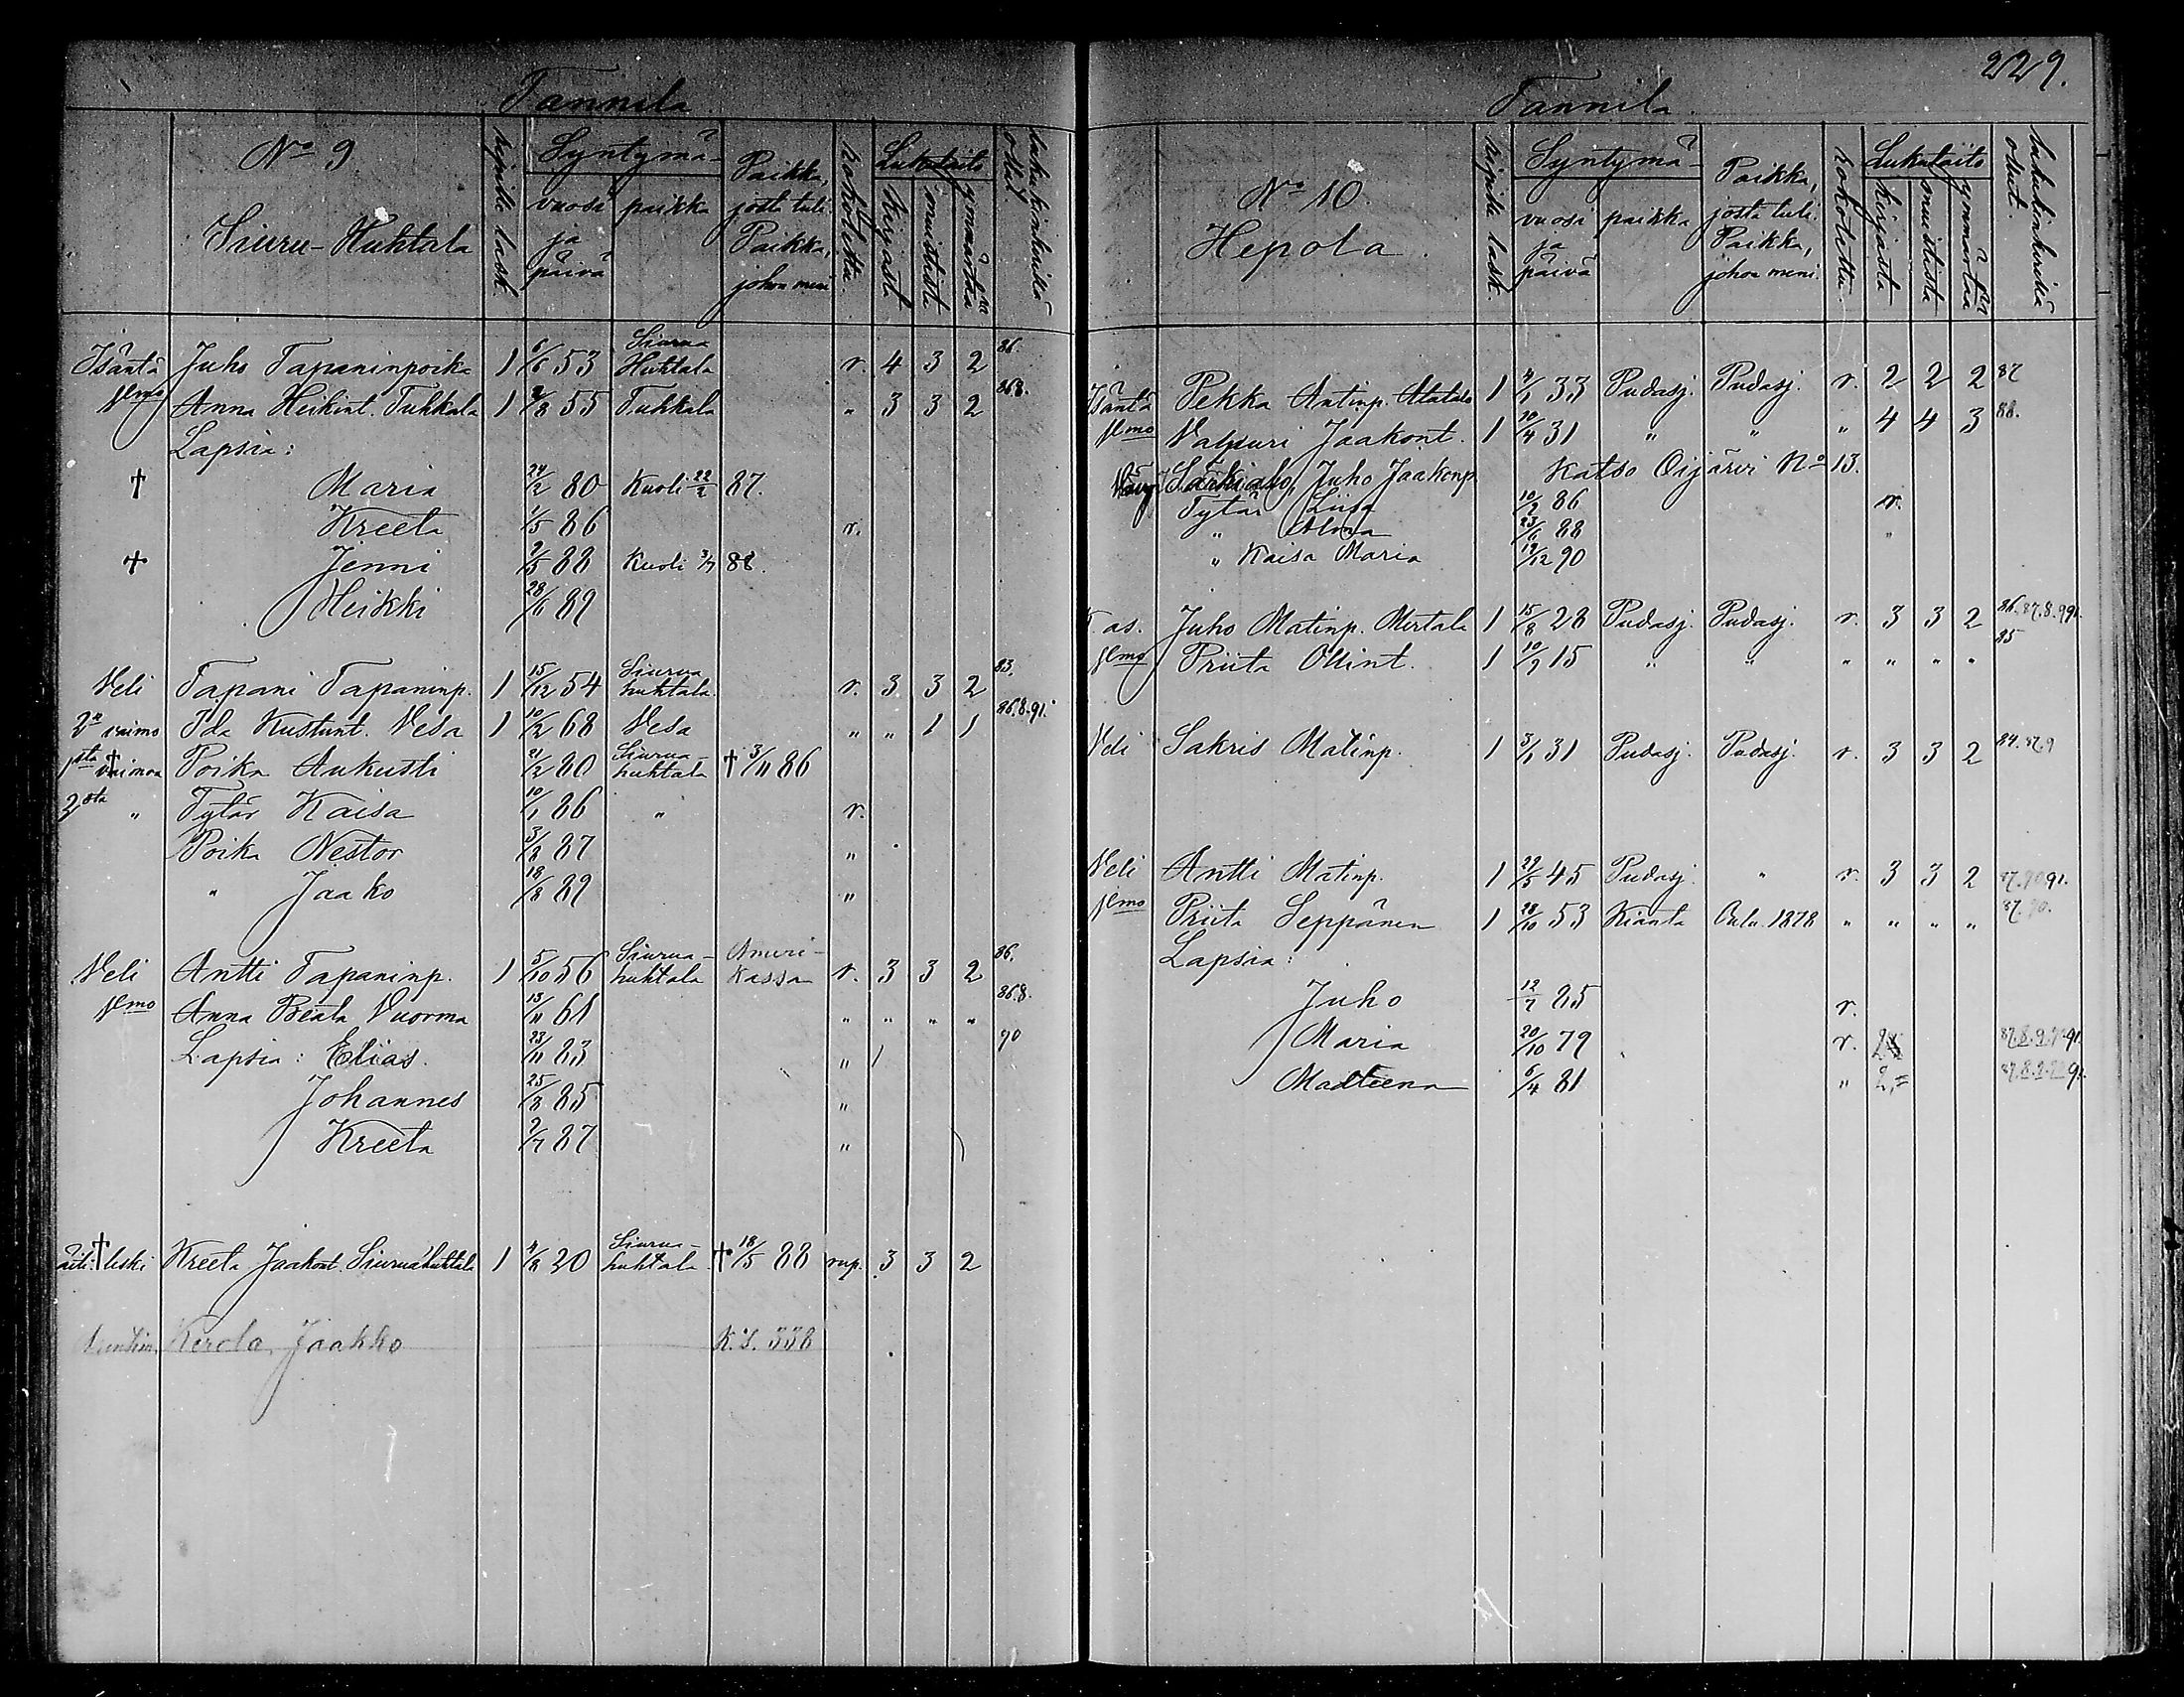 Tannila
No 9
Siuru-Huhtala
Syntymä-
vuosi ja päivä
paikka
Paikka, josta tuli. Paikka, johon meni
rokotettu.
Lukutaito
kirjasta
omistista
ymmärtää
lukukinkerillä ollut.
Isäntä Juho Tapaninpoika 1 6/6 53 Siurua Huhtala r. 4 3 2 86.
Vmo Anna Heikint. Tuhkala 1 2/8 55 Tuhkala " 3 3 2 86.8.
Lapsia:
† Maria 24/2 80 Kuoli 22/2 87.
Kreeta 1/5 86 r.
† Jenni 2/5 88 Kuoli 3/7 88.
Heikki 28/6 89
Veli Tapani Tapaninp. 1 15/12 54 Siurua huhtala r. 3 3 2 83.
2n vaimo Ida Kustunt. Vesa 1 10/2 68 Vesa " " 1 1 86.8.91.
1sta † vaimoa Poika Aukusti 21/2 80 Siurua-huhtala † 3/11 86
2sta " Tytär Kaisa 10/1 86 " r.
Poika Nestor 3/8 87 "
" Jaako 18/8 89 "
Veli Antti Tapaninp. 1 5/10 56 Siurua-huhtala Ameri-kassa r. 3 3 2 86.
Vmo Anna Beata Vuorma 13/11 61 " " " " 86.8.
Lapsia: Elias. 23/11 83 " 1 90
Johannes 25/8 85 "
Kreeta 2/7 87 "
äiti † leski Kreeta Jaakont. Siuruahuhtala 1 4/8 20 Siurua-huhtala † 18/5 88 rup. 3 3 2
Kerola, Jaakko K.S. 338
229.
Tannila
No 10.
Hepola.
ripille lask.
Syntymä-
vuosi ja päivä
paikka
Paikka, josta tuli. Paikka, johon meni.
rokotettu.
Lukutaito
kirjasta
omistista
ymmärtää
lukukinkerillä ollut.
Isäntä Pekka Antinp. Alatalo 1 4/1 33 Pudasj. Pudasj. r. 2 2 2 87
Vmo Valpuri Jaakont. 1 10/4 31 " " " 4 4 3 88.
Särkialo, Juho Jaakonp. Katso Oijärvi No 13.
Tytär Liisa 10/2 86 r.
" Alma 23/6 88 "
" Kaisa Maria 19/12 90
as. Juho Matinp. Mertala 1 15/8 28 Pudasj. Pudasj. r. 3 3 2 86.87.8.9.91.
Vmo Priita Ollint. 1 10/9 15 " " " " " " 85
Veli Sakris Matinp. 1 3/1 31 Pudasj. Pudasj. r. 3 3 2 84.87.9
Veli Antti Matinp. 1 22/5 45 Pudasj. " r. 3 3 2 87.90.91.
Vmo Priita Seppänen 1 28/10 53 Kianta Oulu 1878 " " " " 87.90.
Lapsia:
Juho 12/7 85 r.
Maria 20/10 79 r. 2 87.8.9.90.91.
Madleena 6/4 81 " 2 87.8.9.90.91.